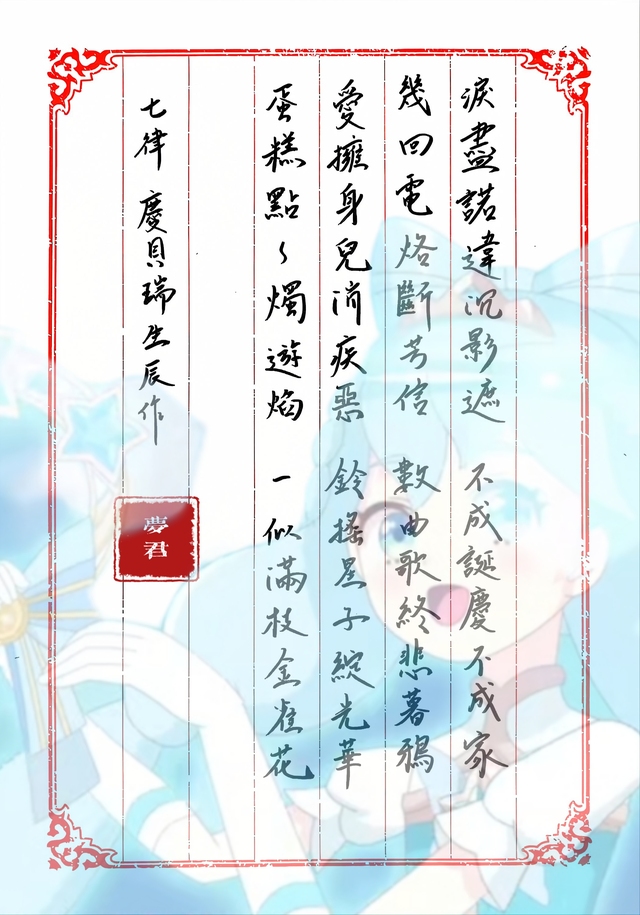 淚盡諾違沉影遮 不成誕慶不成家
幾回電烙斷芳信 數曲歌終悲暮鴉
愛擁身兒消疾惡 鈴搖星子綻光華
蛋糕點〻燭遊焰 一似滿枝金雀花
七律 慶貝瑞生辰作
夢君